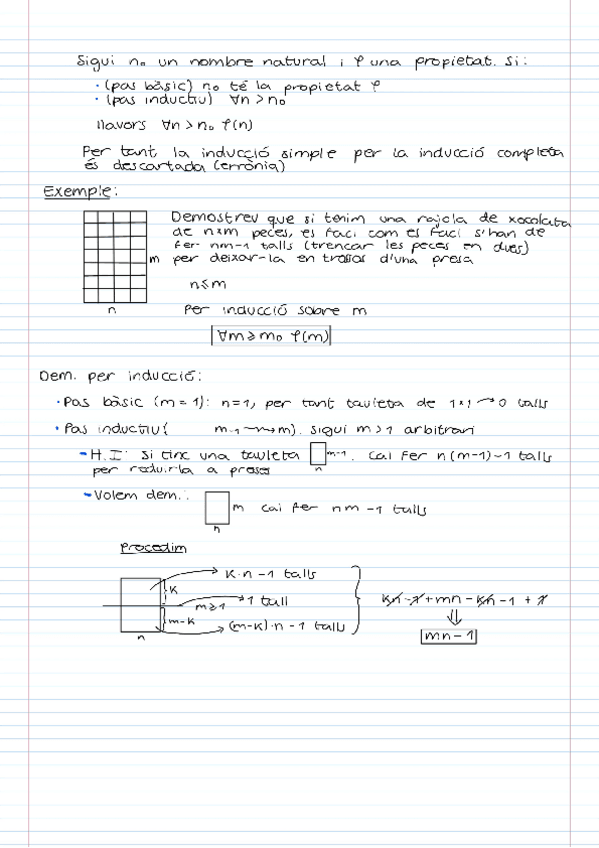 Sigui n₀ un nombre natural i P una propietat. Si:
· (pas bàsic) n₀ té la propietat P
· (pas inductiu) ∀n > n₀
llavors ∀n > n₀ P(n)
Per tant la inducció simple per la inducció completa
és descartada (errònia)
Exemple:
Demostreu que si tenim una rajola de xocolata
de n×m peces, es faci com es faci s'han de
fer nm-1 talls (trencar les peces en dues)
m per deixar-la en trossos d'una presa
n≤m
n Per inducció sobre m
∀m ≥ m₀ P(m)
Dem. per inducció:
· Pas bàsic (m = 1): n=1, per tant tauleta de 1×1 → 0 talls
· Pas inductiu( m-1 ⇝ m). Sigui m > 1 arbitrari
- H.I: Si tinc una tauleta m-1. Cal fer n(m-1)-1 talls
n
per reduirla a preses
- Volem dem.: m cal fer nm -1 talls
n
Procedim
k·n - 1 talls
k
m≥1 1 tall kn - 1 + mn - kn - 1 + 1
m-k (m-k)·n - 1 talls ⇓
n mn - 1